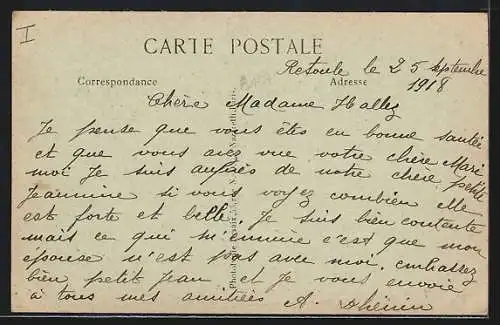 I
CARTE POSTALE
Correspondance
Adresse
Retoule le 25 septembre
1918
Chère Madame Hallez
Je pense que vous êtes en bonne santée
et que vous avez vue votre chère Mari
moi Je suis auprès de notre chère petite
Jeannine si vous voyez combien elle
est forte et belle. Je suis bien contente
mais ce qui m'ennuie c'est que mon
épouse n'est pas avec moi. embrassez
bien petit Jean et Je vous envoie
à tous mes amitiées A. Dhénin